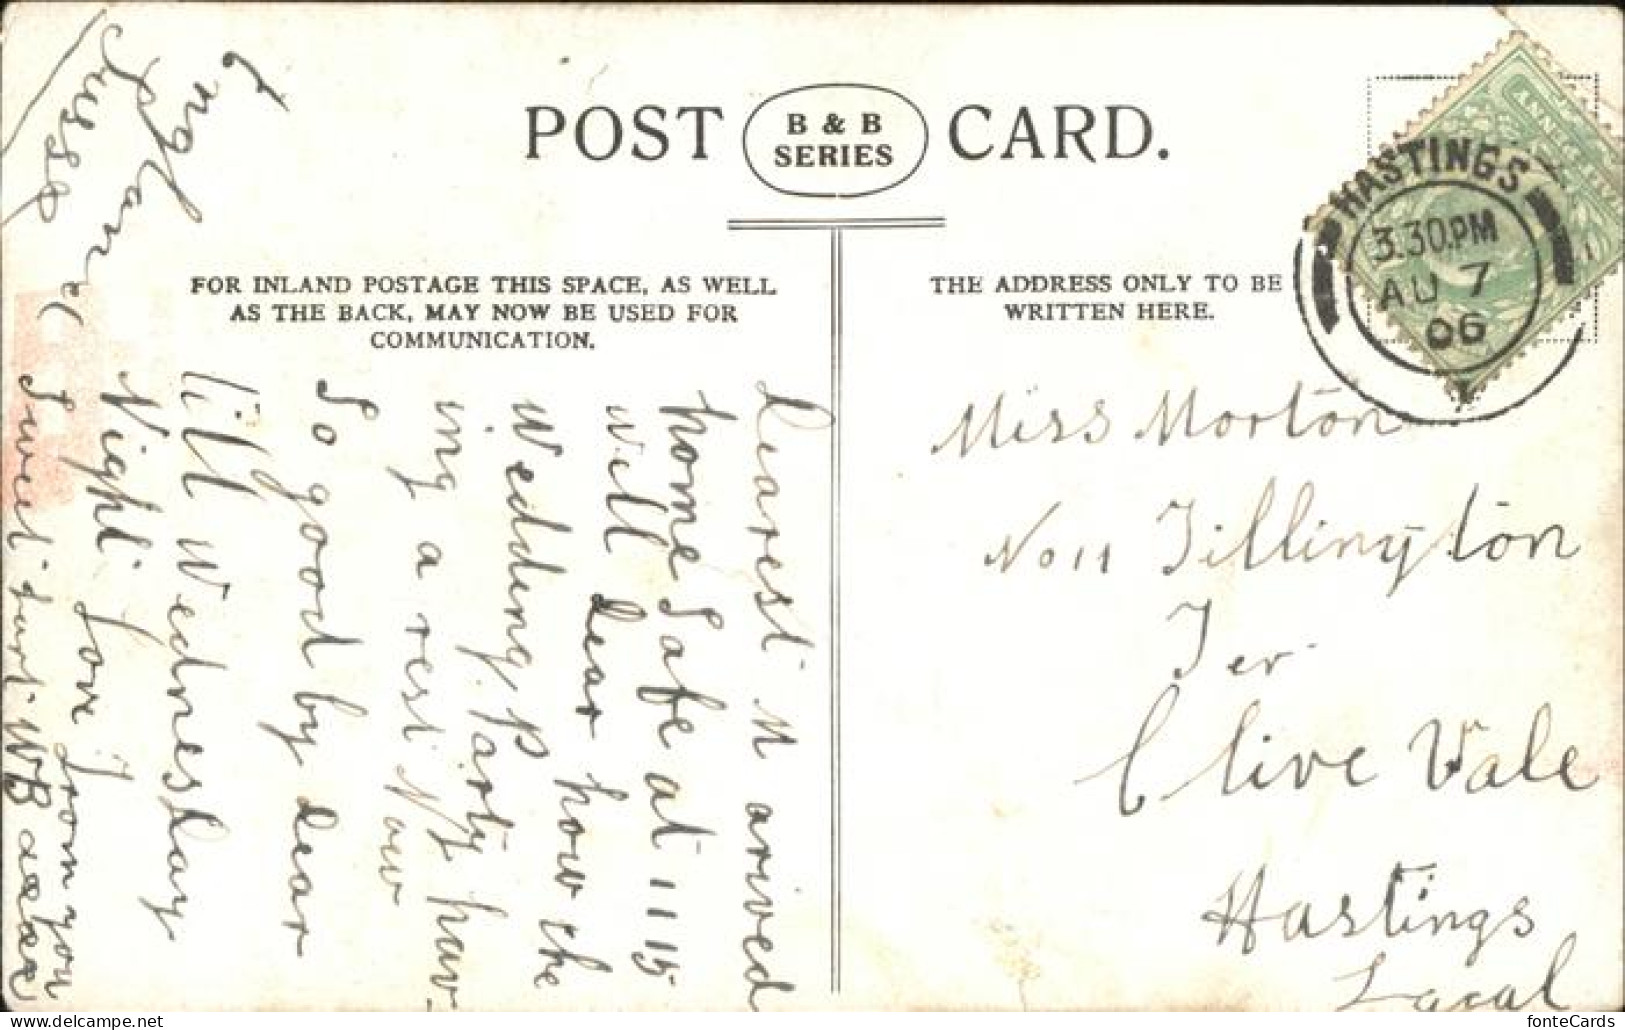 POST CARD.
B & B
SERIES
FOR INLAND POSTAGE THIS SPACE, AS WELL
AS THE BACK, MAY NOW BE USED FOR
COMMUNICATION.
THE ADDRESS ONLY TO BE
WRITTEN HERE.
HASTINGS
3.30.PM
AU 7
06
Miss Morton
No 11 Tillington
Ter
Clive Vale
Hastings
Local
Dearest M arived
home Safe at 11 15
Will dear how the
Wedding Party hav-
ing a rest Now
So good by dear
till Wednesday
Night Love from your
Sweet Hart WB xxxxx
England
Sussex
fonteCards